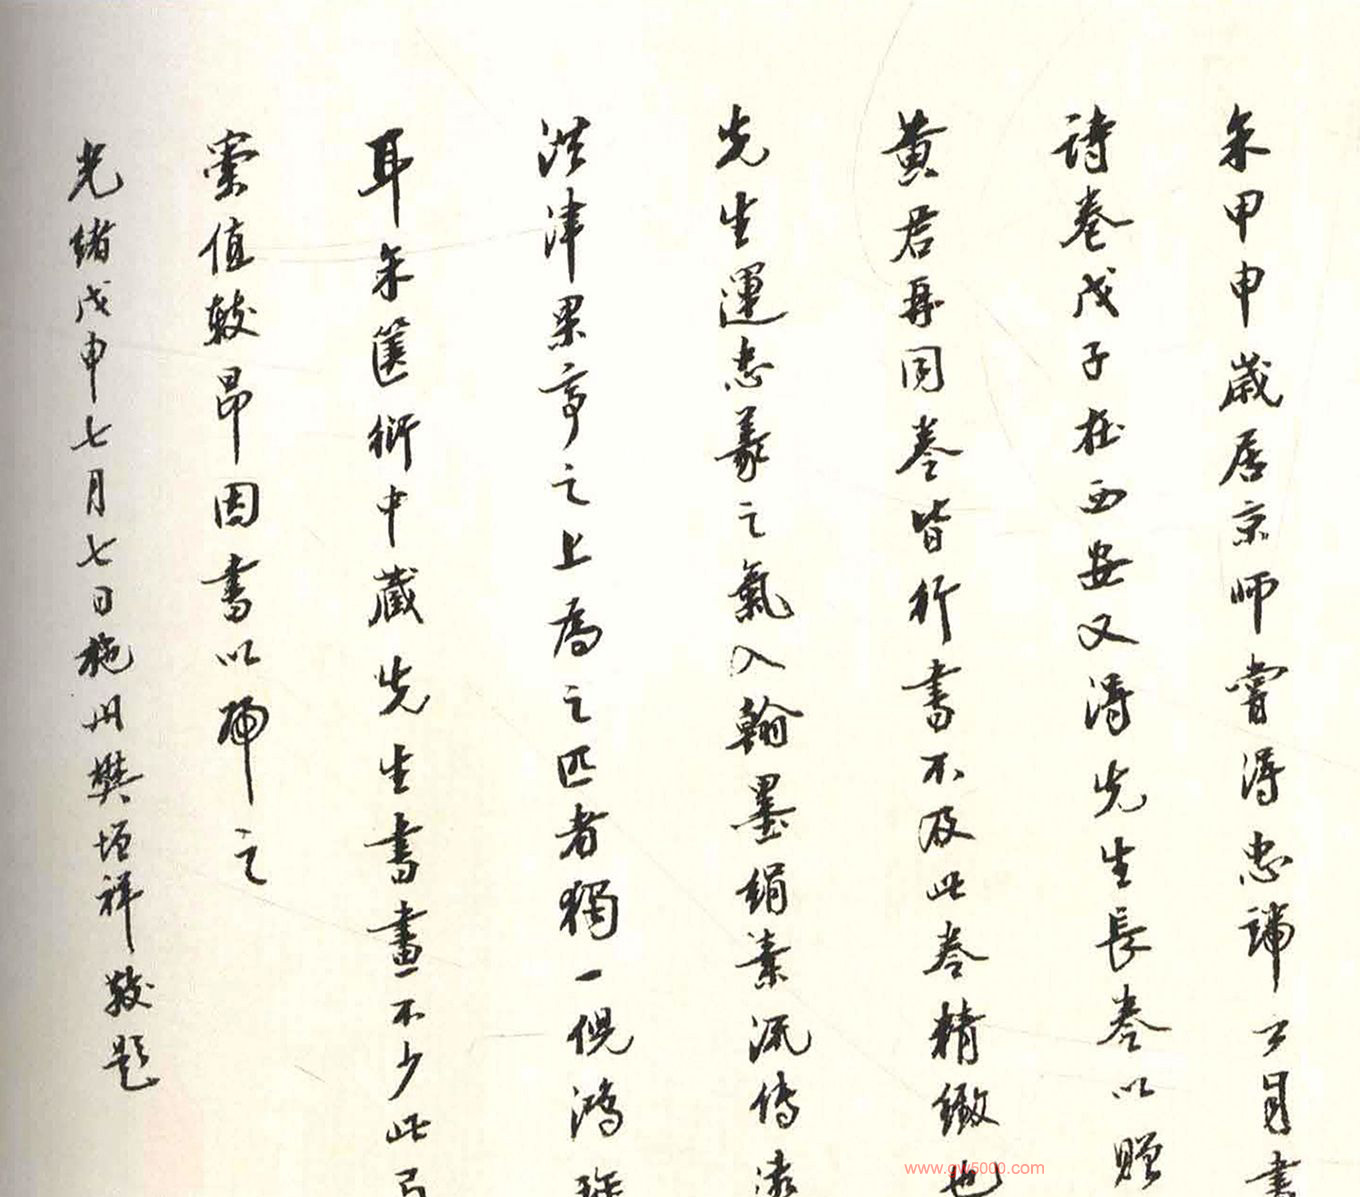 余甲申歲居京師嘗得忠端公自書
詩卷戊子在西安又得先生長卷以贈
黃君再同卷皆行書不及此卷精緻也
先生運忠義之氣入翰墨絹素流傳遂
洪津梁亭之上為之匹者獨一倪鴻
耳余篋衍中藏先生書畫不少此
索值較昂因書以歸之
光緒戊申七月七日施州樊增祥敬題
www.gw5000.com